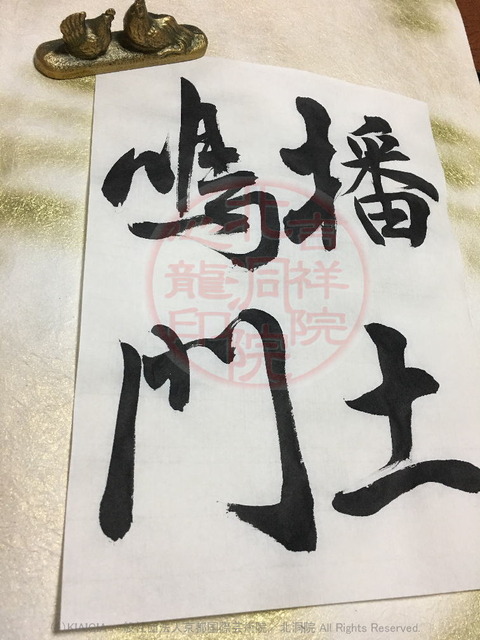 播土
鳴門
吉祥院
北洞院
龍印
京都国際芸術院／北洞院 All Rights Reserved.